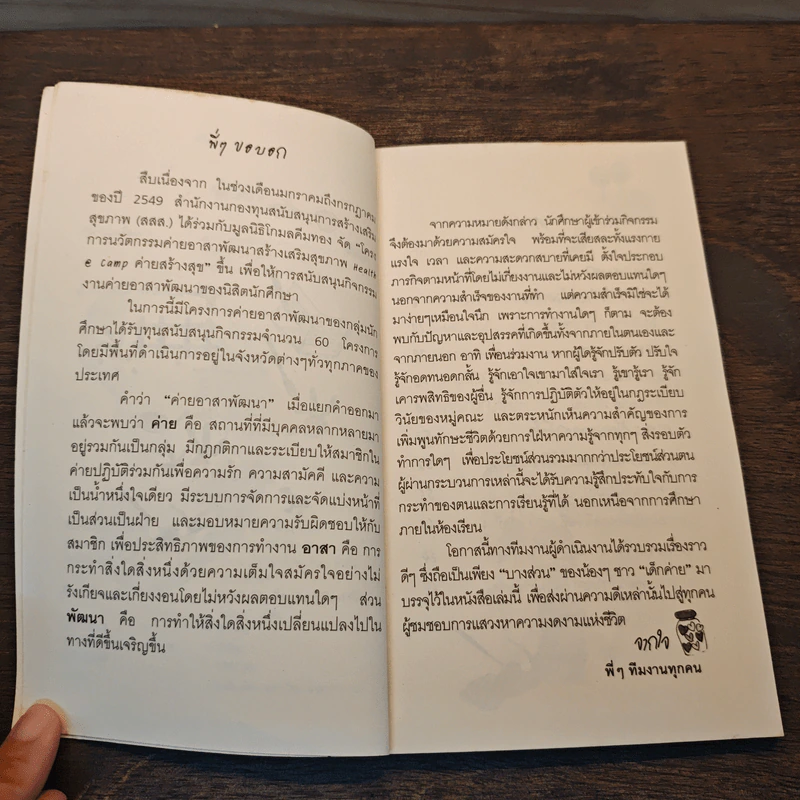 พี่ๆ ขอบอก
สืบเนื่องจาก ในช่วงเดือนมกราคมถึงกรกฎาคม
ของปี 2549 สำนักงานกองทุนสนับสนุนการสร้างเสริม
สุขภาพ (สสส.) ได้ร่วมกับมูลนิธิโกมลคีมทอง จัด “โครง
การนวัตกรรมค่ายอาสาพัฒนาสร้างเสริมสุขภาพ Health
e camp ค่ายสร้างสุข” ขึ้น เพื่อให้การสนับสนุนกิจกรรม
งานค่ายอาสาพัฒนาของนิสิตนักศึกษา
ในการนี้มีโครงการค่ายอาสาพัฒนาของกลุ่มนัก
ศึกษาได้รับทุนสนับสนุนกิจกรรมจำนวน 60 โครงการ
โดยมีพื้นที่ดำเนินการอยู่ในจังหวัดต่างๆทั่วทุกภาคของ
ประเทศ
คำว่า “ค่ายอาสาพัฒนา” เมื่อแยกคำออกมา
แล้วจะพบว่า ค่าย คือ สถานที่ที่มีบุคคลหลากหลายมา
อยู่รวมกันเป็นกลุ่ม มีกฎกติกาและระเบียบให้สมาชิกใน
ค่ายปฏิบัติร่วมกันเพื่อความรัก ความสามัคคี และความ
เป็นน้ำหนึ่งใจเดียว มีระบบการจัดการและจัดแบ่งหน้าที่
เป็นส่วนเป็นฝ่าย และมอบหมายความรับผิดชอบให้กับ
สมาชิก เพื่อประสิทธิภาพของการทำงาน อาสา คือ การ
กระทำสิ่งใดสิ่งหนึ่งด้วยความเต็มใจสมัครใจอย่างไม่
รังเกียจและเกี่ยงงอนโดยไม่หวังผลตอบแทนใดๆ ส่วน
พัฒนา คือ การทำให้สิ่งใดสิ่งหนึ่งเปลี่ยนแปลงไปใน
ทางที่ดีขึ้นเจริญขึ้น
จากความหมายดังกล่าว นักศึกษาผู้เข้าร่วมกิจกรรม
จึงต้องมาด้วยความสมัครใจ พร้อมที่จะเสียสละทั้งแรงกาย
แรงใจ เวลา และความสะดวกสบายที่เคยมี ตั้งใจประกอบ
ภารกิจตามหน้าที่โดยไม่เกี่ยงงานและไม่หวังผลตอบแทนใดๆ
นอกจากความสำเร็จของงานที่ทำ แต่ความสำเร็จมิใช่จะได้
มาง่ายๆเหมือนใจนึก เพราะการทำงานใดๆ ก็ตาม จะต้อง
พบกับปัญหาและอุปสรรคที่เกิดขึ้นทั้งจากภายในตนเองและ
จากภายนอก อาทิ เพื่อนร่วมงาน หากผู้ใดรู้จักปรับตัว ปรับใจ
รู้จักอดทนอดกลั้น รู้จักเอาใจเขามาใส่ใจเรา รู้เขารู้เรา รู้จัก
เคารพสิทธิของผู้อื่น รู้จักการปฏิบัติตัวให้อยู่ในกฎระเบียบ
วินัยของหมู่คณะ และตระหนักเห็นความสำคัญของการ
เพิ่มพูนทักษะชีวิตด้วยการใฝ่หาความรู้จากทุกๆ สิ่งรอบตัว
ทำการใดๆ เพื่อประโยชน์ส่วนรวมมากกว่าประโยชน์ส่วนตน
ผู้ผ่านกระบวนการเหล่านี้จะได้รับความรู้สึกประทับใจกับการ
กระทำของตนและการเรียนรู้ที่ได้ นอกเหนือจากการศึกษา
ภายในห้องเรียน
โอกาสนี้ทางทีมงานผู้ดำเนินงานได้รวบรวมเรื่องราว
ดีๆ ซึ่งถือเป็นเพียง “บางส่วน” ของน้องๆ ชาว “เด็กค่าย” มา
บรรจุไว้ในหนังสือเล่มนี้ เพื่อส่งผ่านความดีเหล่านั้นไปสู่ทุกคน
ผู้ชมชอบการแสวงหาความงดงามแห่งชีวิต
จากใจ
พี่ๆ ทีมงานทุกคน